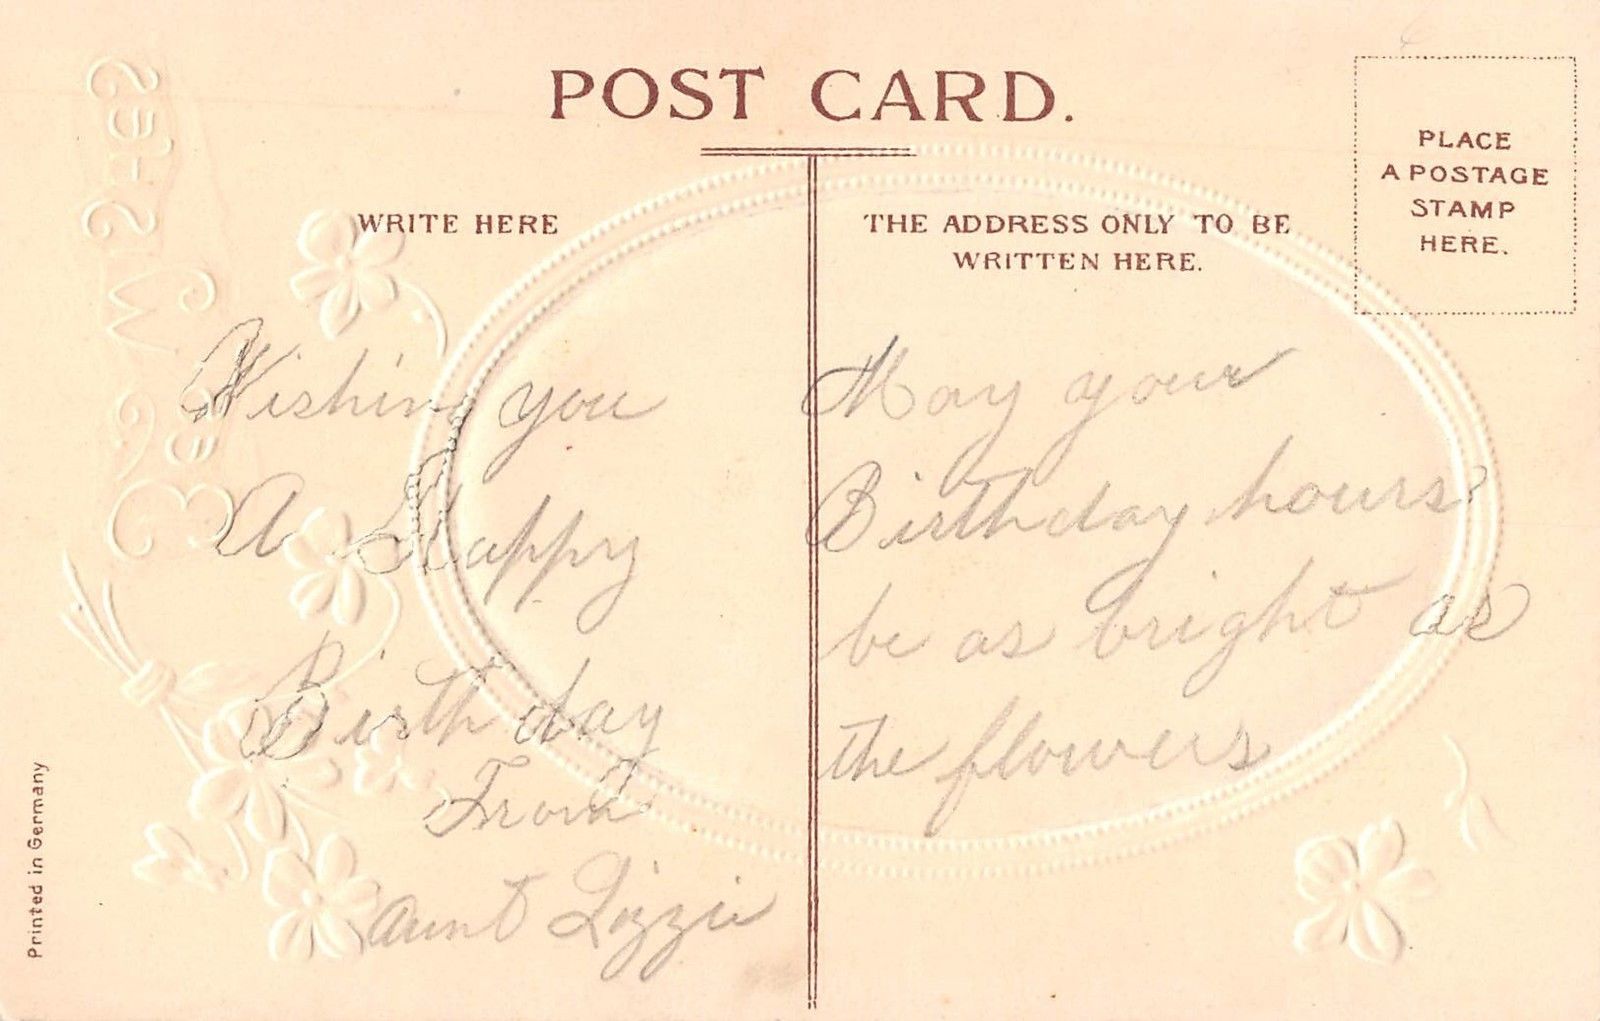 POST CARD.
PLACE
A POSTAGE
STAMP
HERE.
WRITE HERE
Wishing you
A Happy
Birthday
From
Aunt Lizzie
THE ADDRESS ONLY TO BE
WRITTEN HERE.
May your
Birthday hours
be as bright as
the flowers
Printed in Germany
Best Wishes